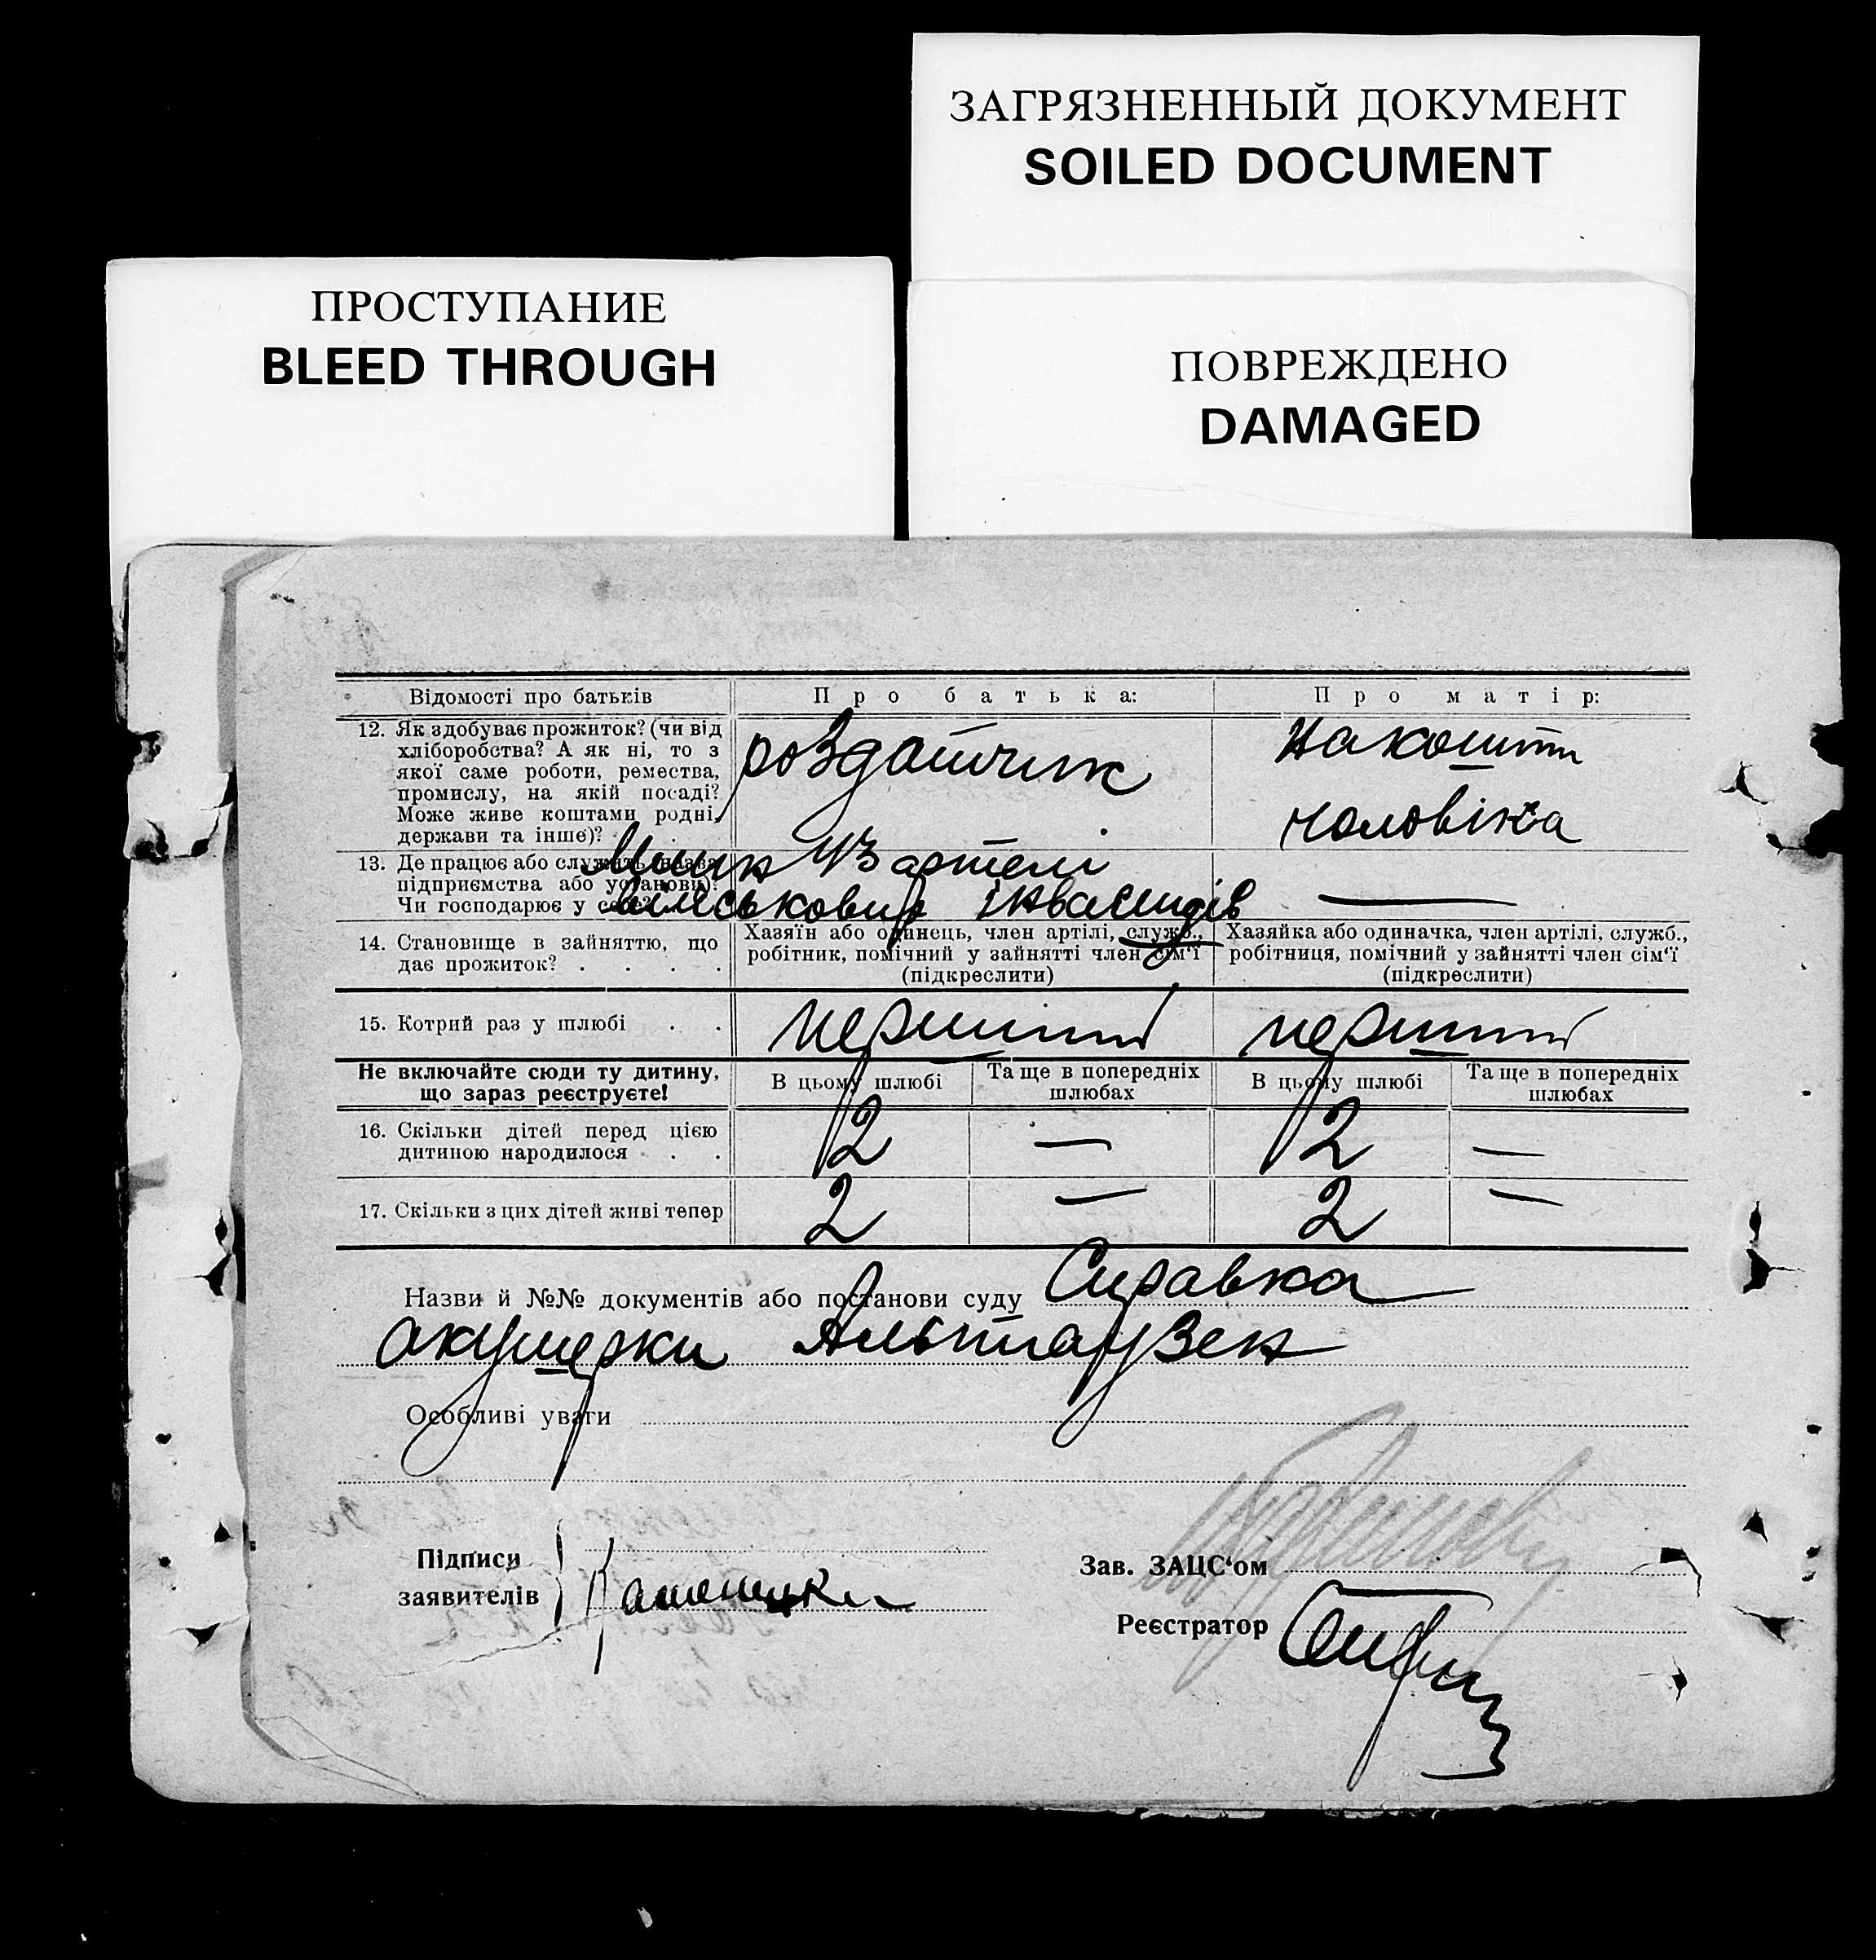 ЗАГРЯЗНЕННЫЙ ДОКУМЕНТ
SOILED DOCUMENT
ПРОСТУПАНИЕ
BLEED THROUGH
ПОВРЕЖДЕНО
DAMAGED
Відомості про батьків
Про батька:
Про матір:
12. Як здобуває прожиток? (чи від
хліборобства? А як ні, то з
якої саме роботи, ремества,
промислу, на якій посаді?
Може живе коштами родні,
держави та інше)?
роздатчик
На кошти
чоловіка
13. Де працює або служить (назва
підприємства або установи)?
Чи господарює у себе?
артелі
військових інвалидів
—
14. Становище в зайняттю, що
дає прожиток? . . . .
Хазяїн або одинець, член артілі, служб.,
робітник, помічний у зайнятті член сім'ї
(підкреслити)
Хазяйка або одиначка, член артілі, служб.,
робітниця, помічний у зайнятті член сім'ї
(підкреслити)
15. Котрий раз у шлюбі . .
перший
перший
Не включайте сюди ту дитину,
що зараз реєструєте!
В цьому шлюбі
Та ще в попередніх
шлюбах
В цьому шлюбі
Та ще в попередніх
шлюбах
16. Скільки дітей перед цією
дитиною народилося . .
2 — 2 —
17. Скільки з цих дітей живі тепер
2 — 2 —
Назви й №№ документів або постанови суду Справка
акушерки Альтгаузен
Особливі уваги
Підписи
заявителів
Зав. ЗАЦС'ом
Реєстратор